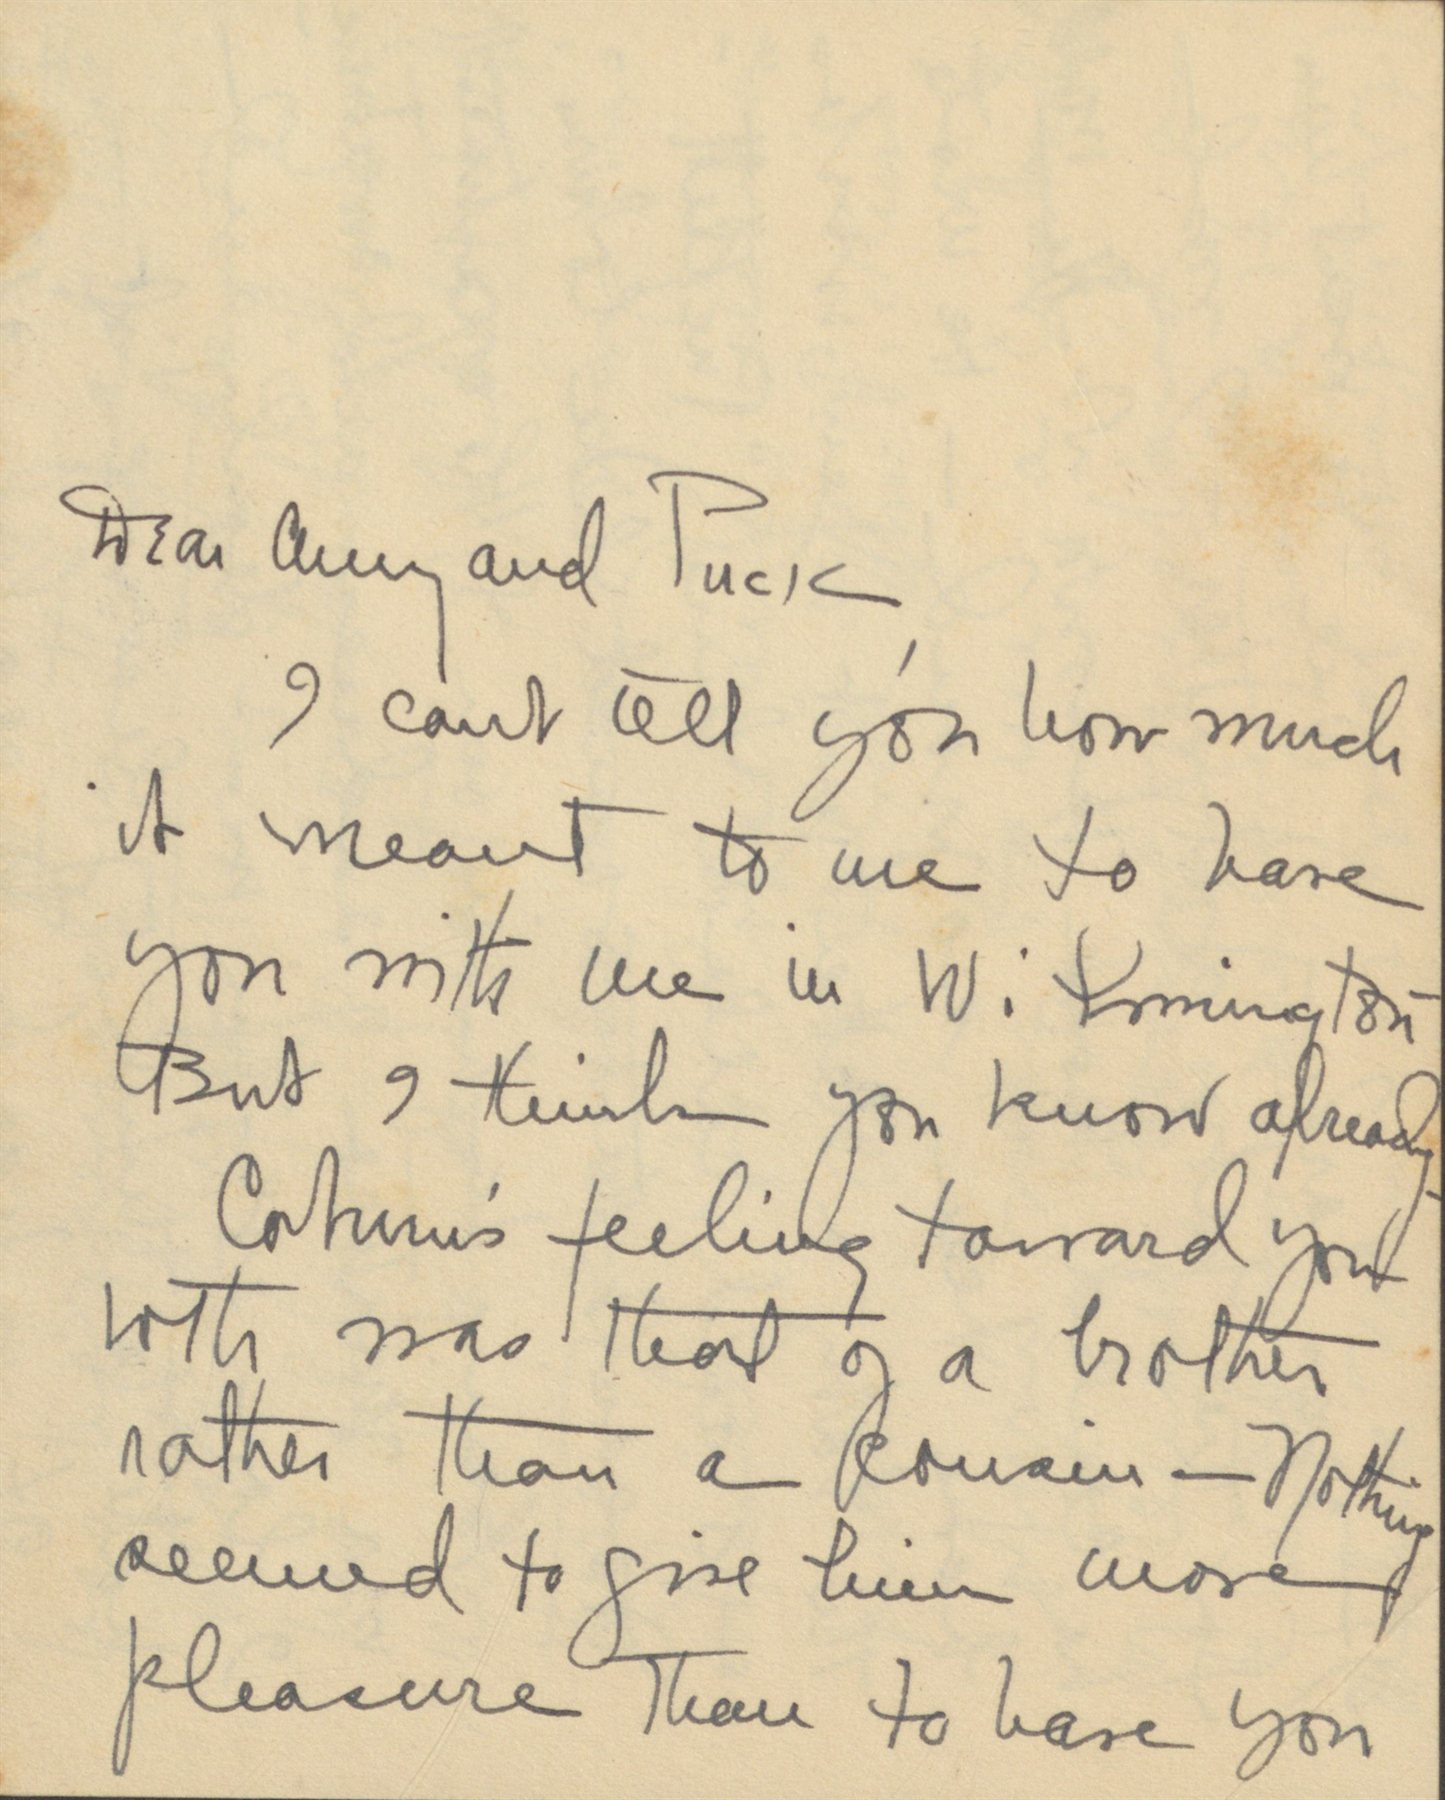 Dear Amy and Puck
I cant tell you how much
it meant to me to have
you with me in Wilmington
But I think you know already
feeling toward you
both was that of a brother
rather than a cousin — Nothing
seemed to give him more
pleasure than to have you